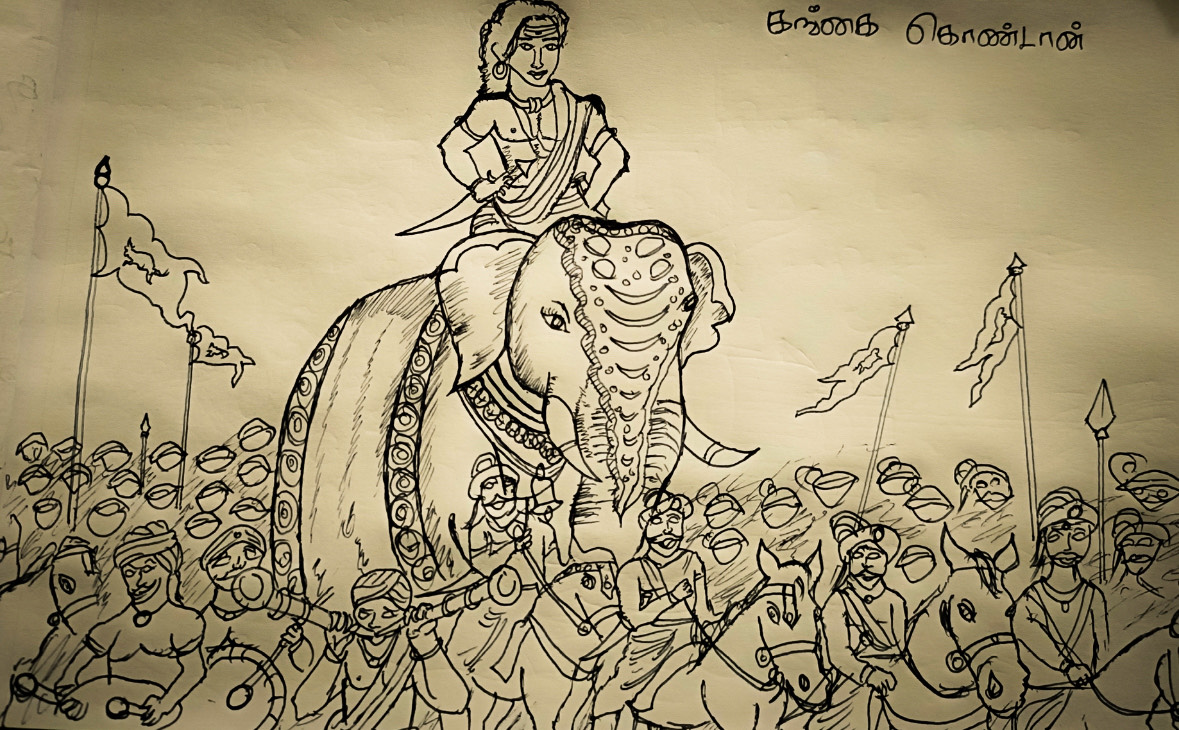 கங்கை கொண்டான்